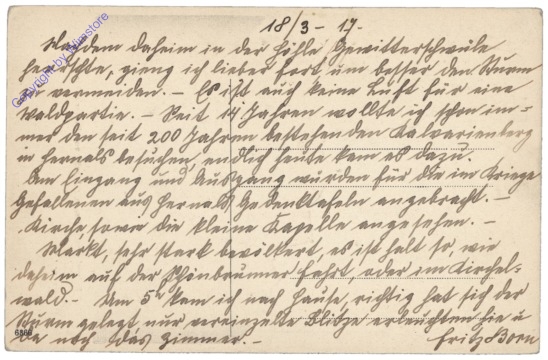 18/3 - 17.
Nachdem daheim in der Höhle Gewitterschwüle
herrschte, gieng ich lieber fort um besser den Sturm
zu vermeiden. — Es ist auch keine Luft für eine
Waldpartie. — Seit 14 Jahren wollte ich schon im-
mer den seit 200 Jahren bestehenden Kalvarienberg
in Hernals besuchen, endlich heute kam es dazu.
Am Eingang und Ausgang wurden für die im Kriege
Gefallenen aus Hernals Gedenktafeln angebracht. —
Kirche sowie die kleine Kapelle angesehen. —
Markt, sehr stark bevölkert, es ist halt so wie
daheim auf der Schönbrunner, oder im
wald. — Um 5h kam ich nach Hause, richtig hat sich der
Sturm gelegt, nur vereinzelte Blitze erleuchten hie u
da noch das Zimmer. —
Fritz Born
6866
Copyright by Wienstore